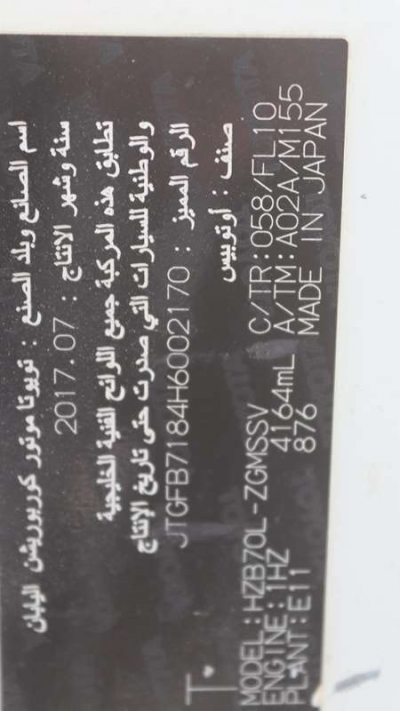 اسم الصانع وبلد الصنع : تويوتا موتور كوربوريشن اليابان
سنة وشهر الانتاج : 2017.07
تطابق هذه المركبة جميع اللوائح الفنية الخليجية
والوطنية للسيارات التي صدرت حتى تاريخ الإنتاج
الرقم المميز : JTGFB7184H6002170
صنف : أوتوبيس
MODEL:HZB70L-ZGMSSV C/TR:058/FL10
ENGINE:1HZ 4164mL A/TM:A02A/M155
PLANT:E11 876 MADE IN JAPAN